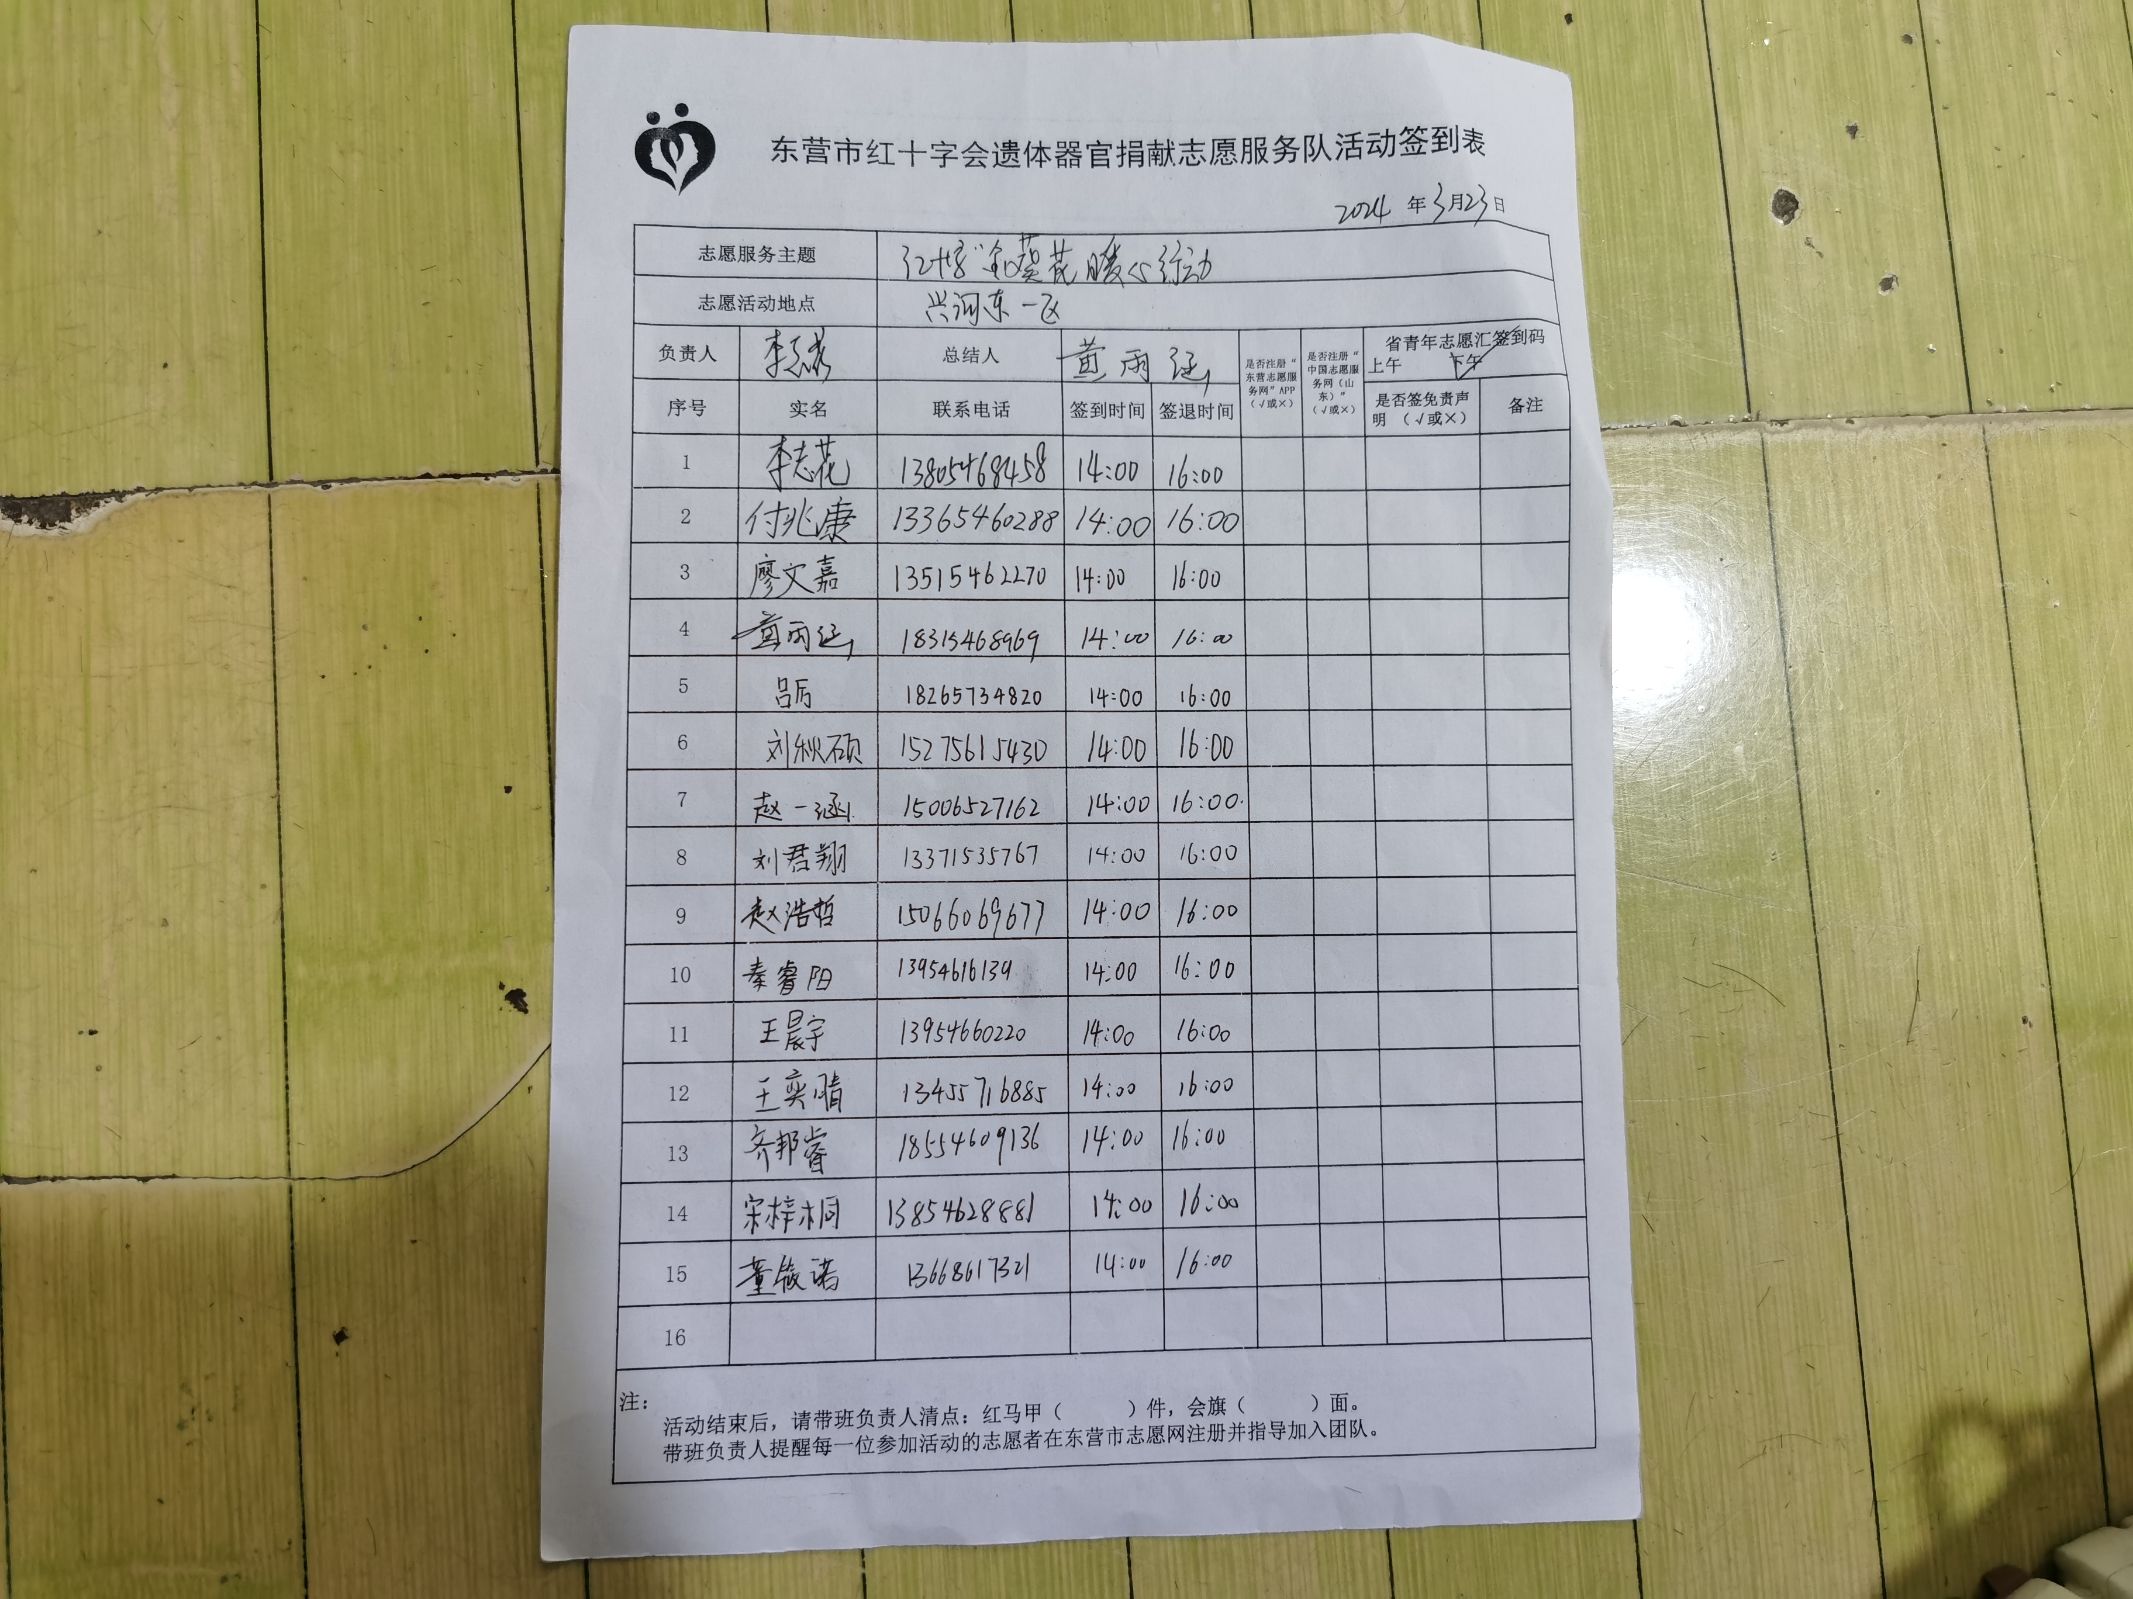 东营市红十字会遗体器官捐献志愿服务队活动签到表
2024 年 3月23日
志愿服务主题 红十字“金葵花暖心行动
志愿活动地点 兴河东一区
负责人 李志花 总结人 黄雨涵 是否注册“东营志愿服务网”APP（√或×） 是否注册“中国志愿服务网（山东）”（√或×） 省青年志愿汇签到码
上午 下午√
序号 实名 联系电话 签到时间 签退时间 是否签免责声明 （√或×） 备注
1 李志花 13805468458 14:00 16:00
2 付兆康 13365460288 14:00 16:00
3 廖文嘉 13515462270 14:00 16:00
4 黄雨涵 18315468969 14:00 16:00
5 吕厉 18265734820 14:00 16:00
6 刘秋硕 15275615430 14:00 16:00
7 赵一涵 15006527162 14:00 16:00
8 刘君翔 13371535767 14:00 16:00
9 赵浩哲 15066069677 14:00 16:00
10 秦睿阳 13954616139 14:00 16:00
11 王晨宇 13954660220 14:00 16:00
12 王奕晴 13455716885 14:00 16:00
13 齐邦睿 18554609136 14:00 16:00
14 宋梓桐 13854628881 14:00 16:00
15 董筱诺 13668617321 14:00 16:00
16
注：
活动结束后，请带班负责人清点：红马甲（ ）件，会旗（ ）面。
带班负责人提醒每一位参加活动的志愿者在东营市志愿网注册并指导加入团队。